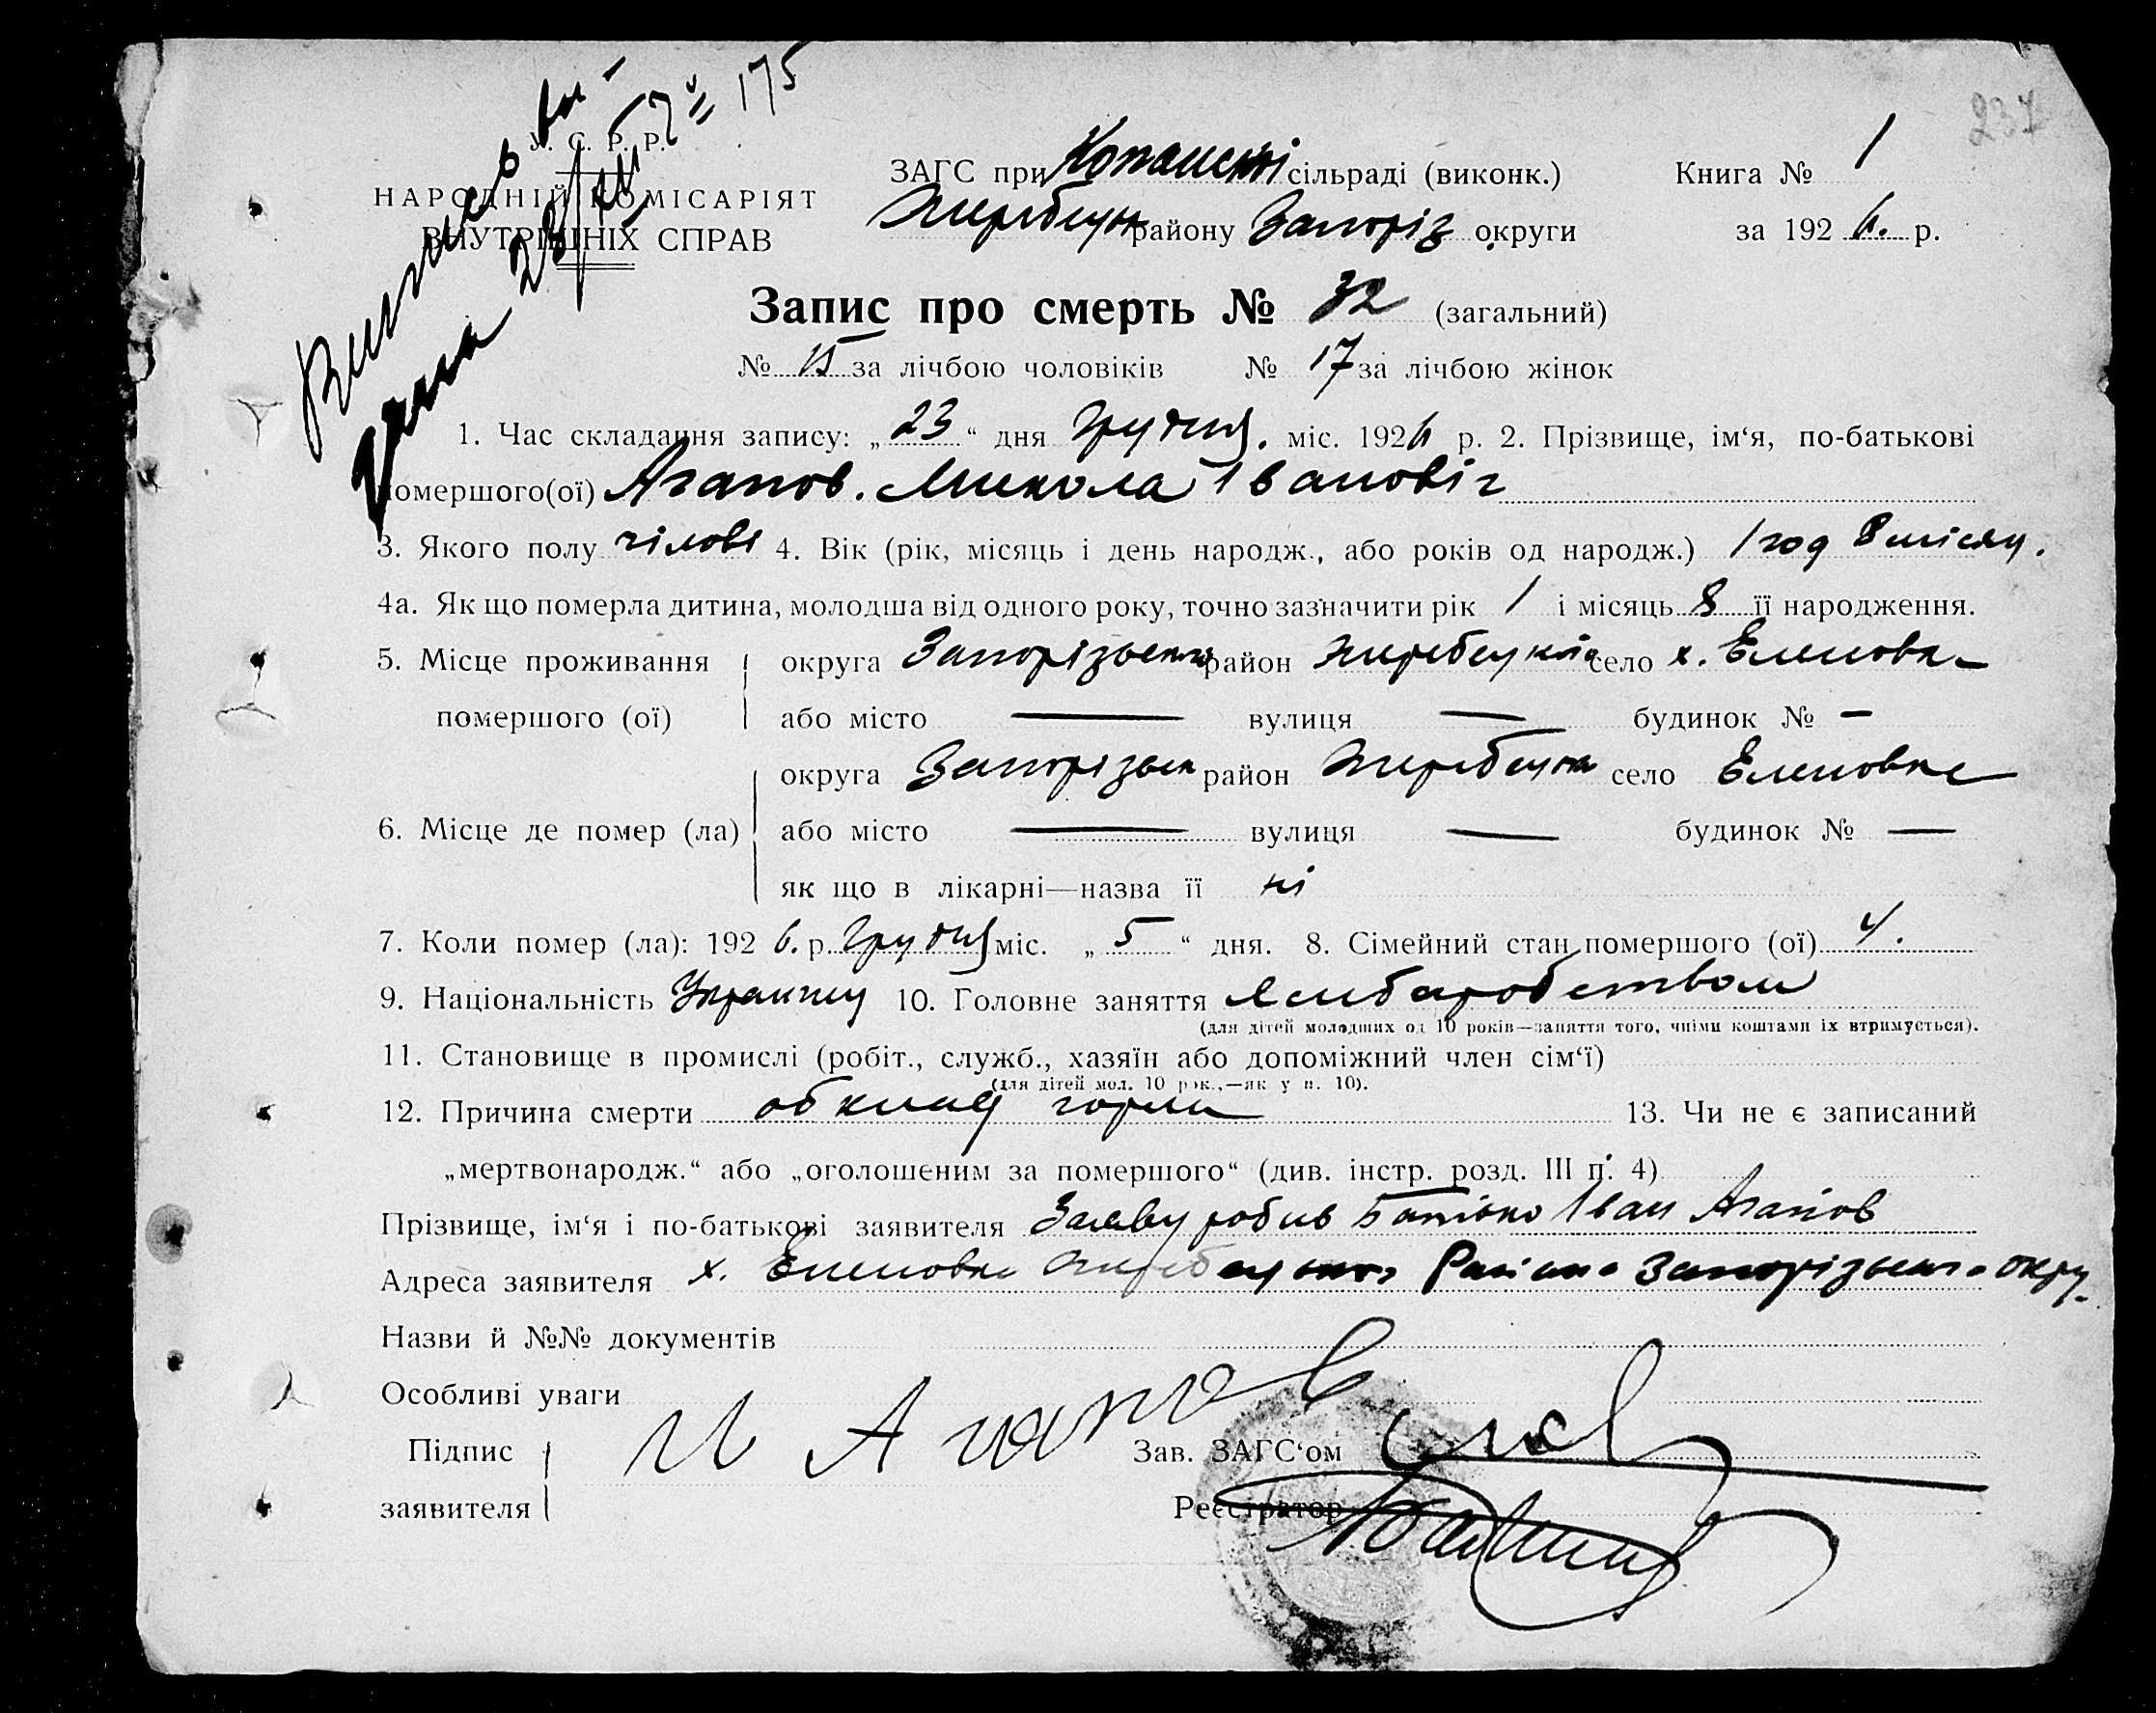 237
175
У. С. Р. Р.
НАРОДНІЙ КОМІСАРІЯТ
ВНУТРІШНІХ СПРАВ
ЗАГС при сільраді (виконк.) Книга № 1
району Запоріз округи за 1926. р.
Запис про смерть № 32 (загальний)
№ 15 за лічбою чоловіків № 17 за лічбою жінок
1. Час складання запису: „23“ дня Грудня. міс. 1926 р. 2. Прізвище, ім‘я, по-батькові
помершого(ої) Агапов. Микола Івановіч
3. Якого полу чілові 4. Вік (рік, місяць і день народж., або років од народж.) 1 год 8 місяц.
4а. Як що померла дитина, молодша від одного року, точно зазначити рік 1 і місяць 8 її народження.
5. Місце проживання округа Запорізькоі район Жеребецкій село х. Еленовка
помершого (ої) або місто — вулиця — будинок № —
округа Запорізьк район Жеребецк село Еленовке
6. Місце де помер (ла) або місто — вулиця — будинок № —
як що в лікарні—назва її ні
7. Коли помер (ла): 1926. р. Грудня міс. „5“ дня. 8. Сімейний стан помершого (ої) 4.
9. Національність Украинец 10. Головне заняття
(для дітей молодших од 10 років—заняття того, чиїми коштами їх втримується).
11. Становище в промислі (робіт., служб., хазяїн або допоміжний член сім‘ї)
(для дітей мол. 10 рок.,—як у п. 10).
12. Причина смерти обклад горла 13. Чи не є записаний
„мертвонародж.“ або „оголошеним за помершого“ (див. інстр. розд. III п. 4)
Прізвище, ім‘я і по-батькові заявителя Заяву робив Батько Іван Агапов
Адреса заявителя х. Еленовка Жеребецького Району Запорізького окру.
Назви й №№ документів
Особливі уваги
Підпис И Агапов Зав. ЗАГС‘ом
заявителя Реєстратор